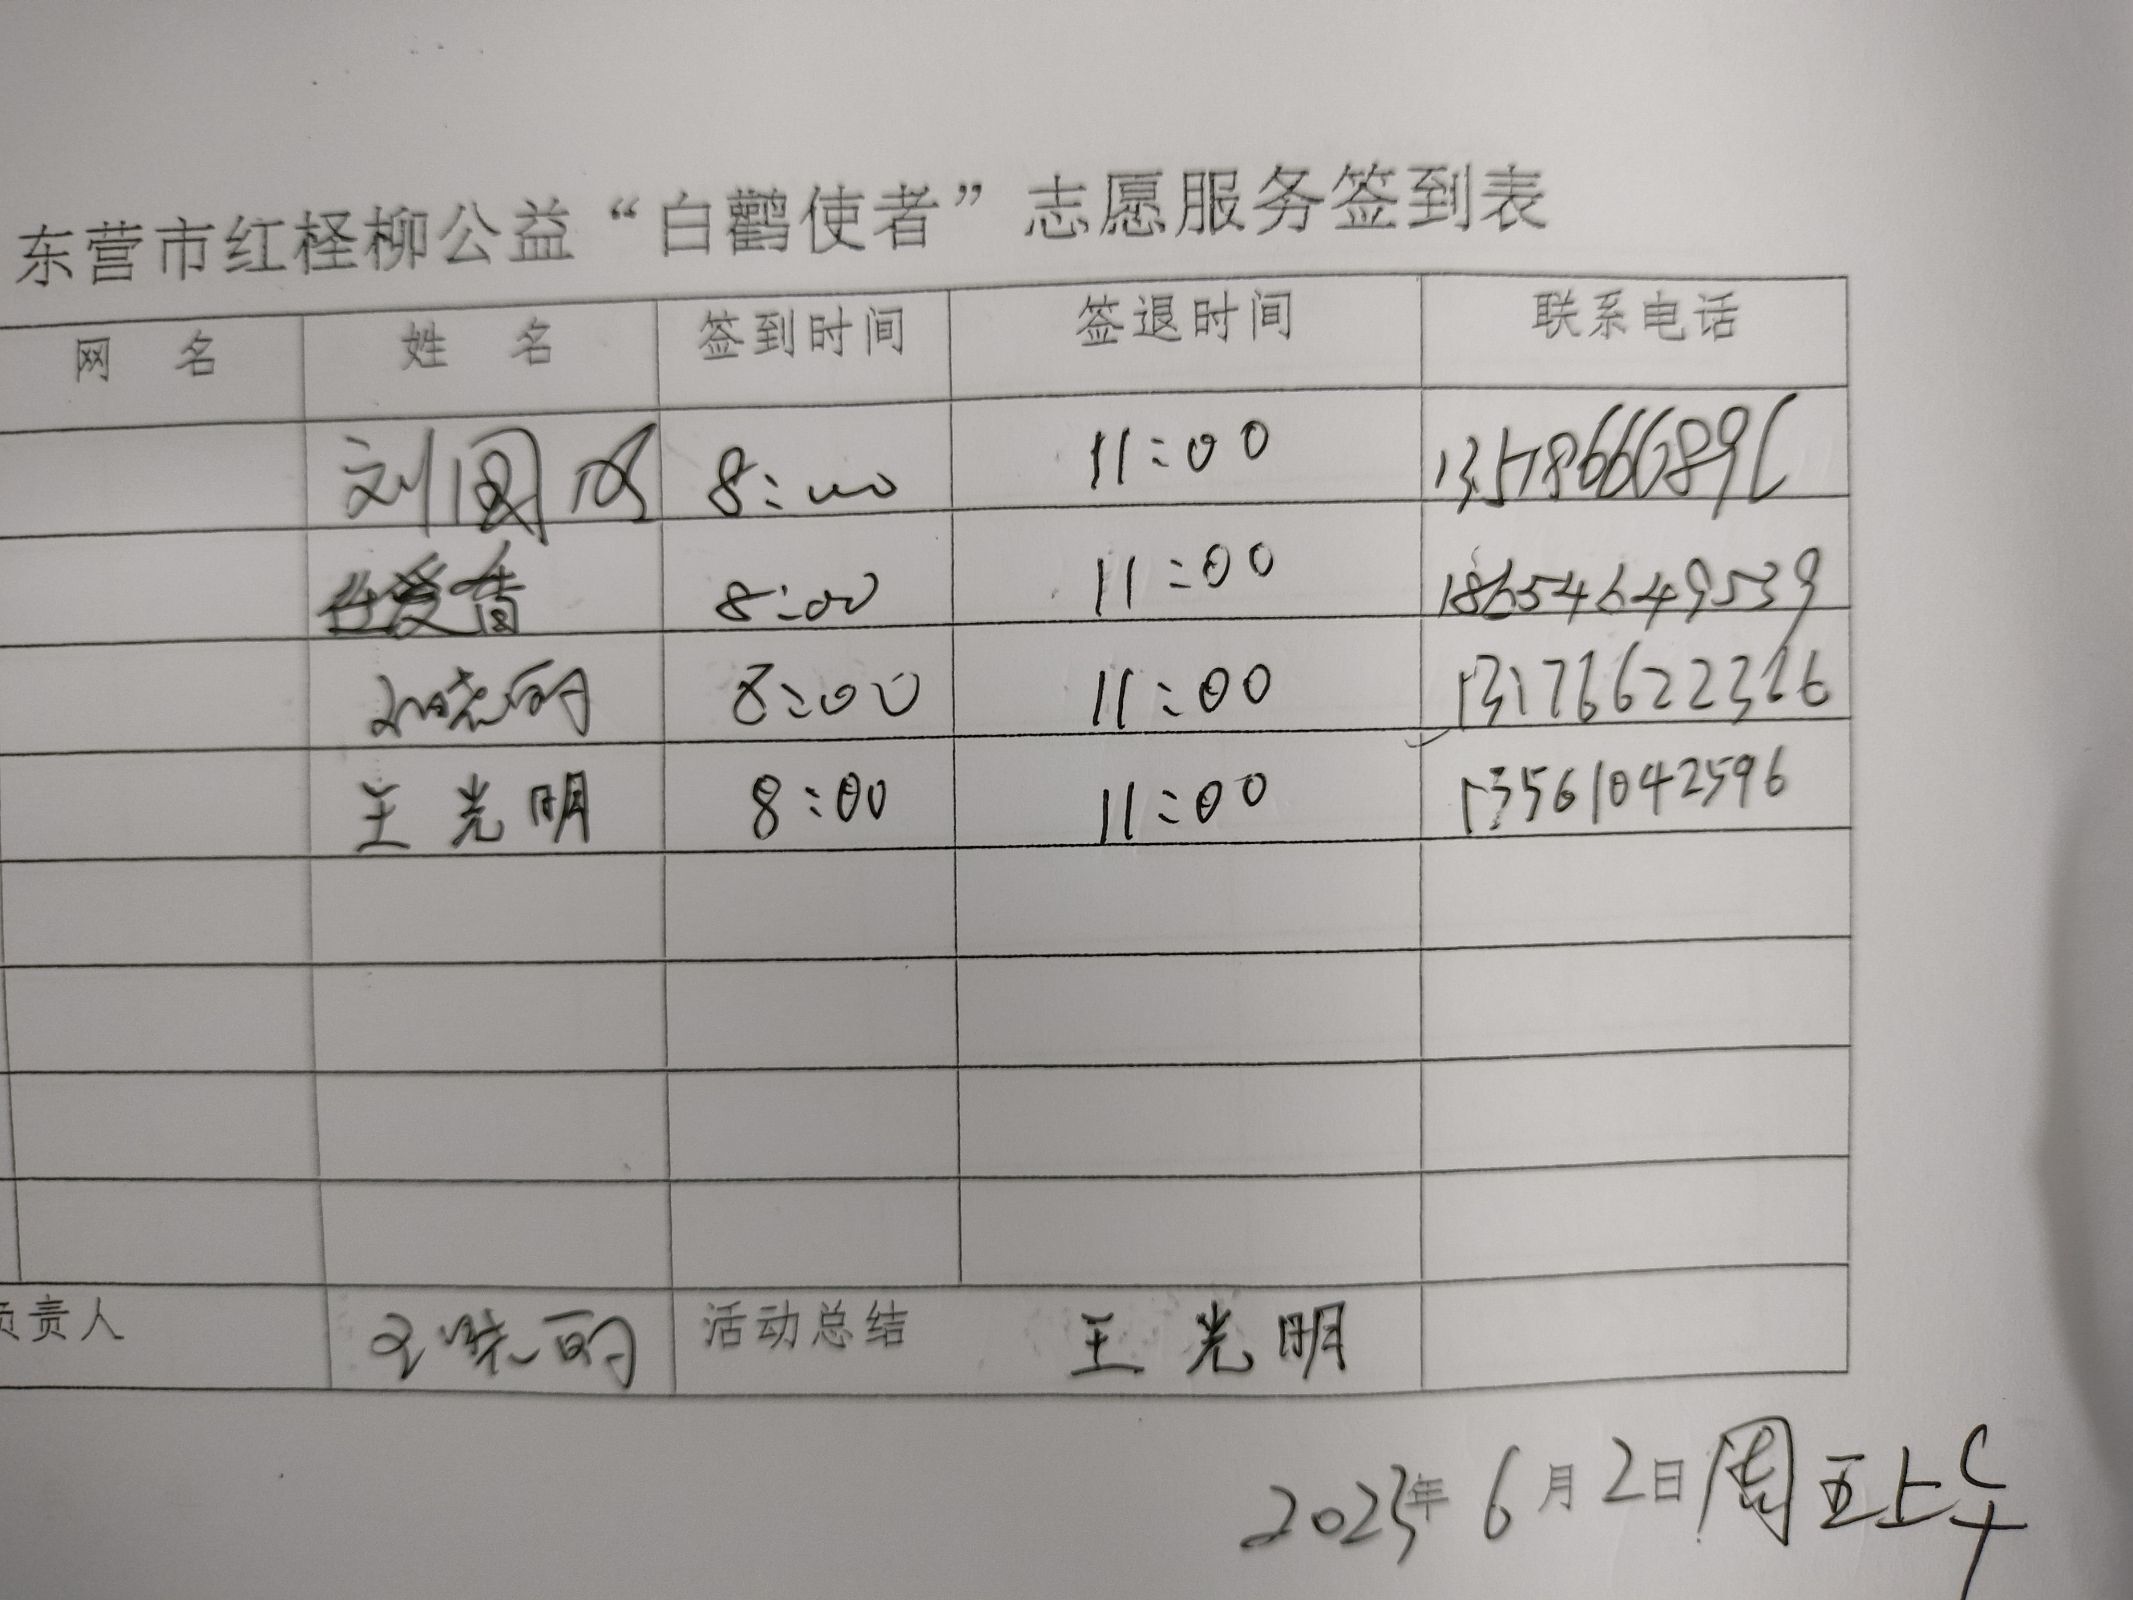 东营市红柽柳公益“白鹳使者”志愿服务签到表
网 名 姓 名 签到时间 签退时间 联系电话
刘国 8:00 11:00
8:00 11:00 18654649539
晓丽 8:00 11:00 13176622316
王光明 8:00 11:00 13561042596
负责人 王晓丽 活动总结 王光明
2023年6月2日周五上午